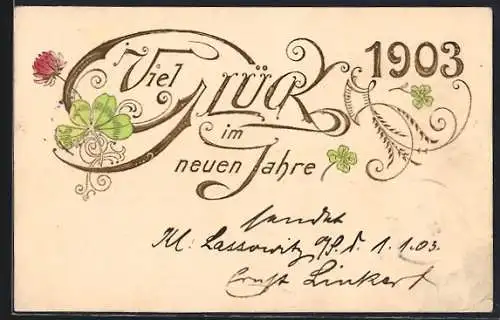 Viel
Glück
1903
im
neuen Jahre
sendet
Kl. Lassowitz O/S. d. 1.1.03.
Ernst Linkert